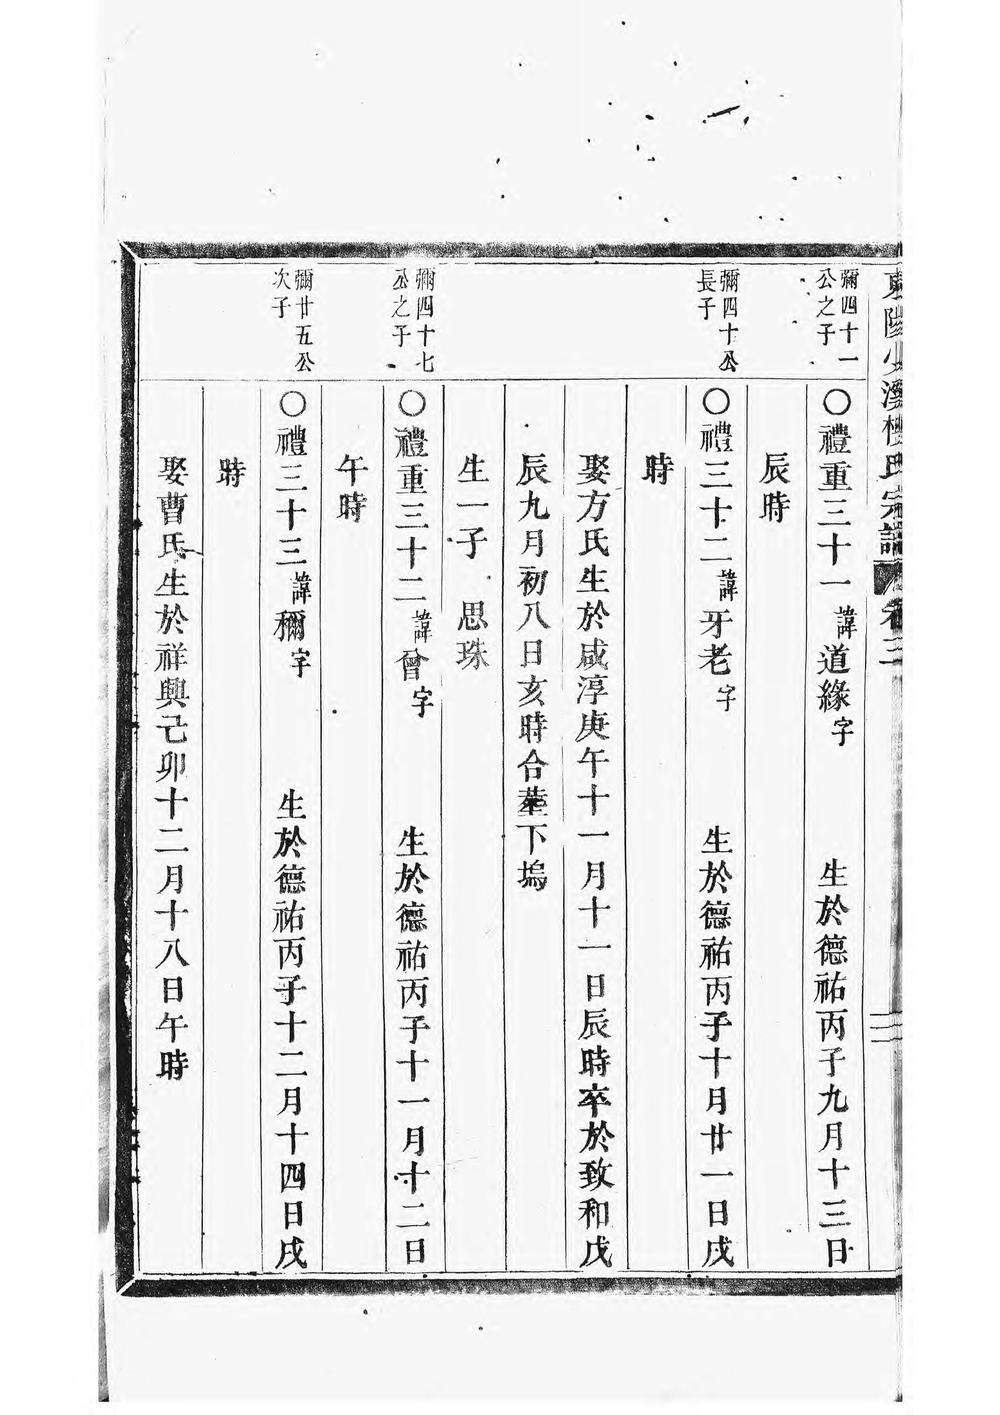 宗譜
卷三
彌四十一
公之子
〇禮重三十一諱道緣字 生於德祐丙子九月十三日
辰時
彌四十公
長子
〇禮三十二諱牙老字 生於德祐丙子十月廿一日戌
時
娶方氏生於咸淳庚午十一月十一日辰時卒於致和戊
辰九月初八日亥時合塟下塢
生一子 思珠
彌四十七
公之子
〇禮重三十二諱會字 生於德祐丙子十一月十二日
午時
彌廿五公
次子
〇禮三十三諱穪字 生於德祐丙子十二月十四日戌
時
娶曹氏生於祥興己卯十二月十八日午時